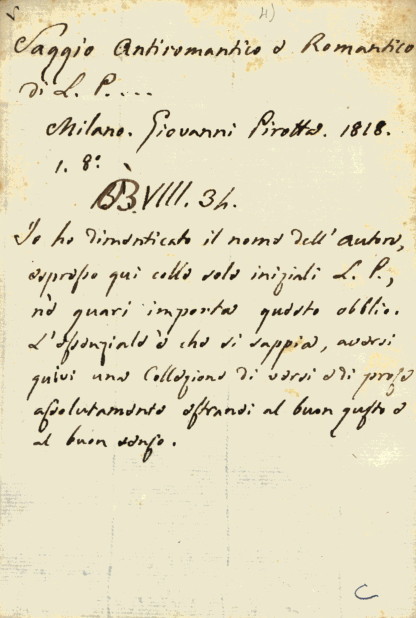 4)
Saggio Antiromantico e Romantico
di L. P....
Milano. Giovanni Pirotta. 1818.
1. 8°.
BB. VIII. 34.
Io ho dimenticato il nome dell' autore,
espresso qui colle sole iniziali L. P.,
nè guari importa questo obblio.
L'essenziale è che si sappia, aversi
quivi una Collezione di versi e di prose
assolutamente estranei al buon gusto e
al buon senso.
C